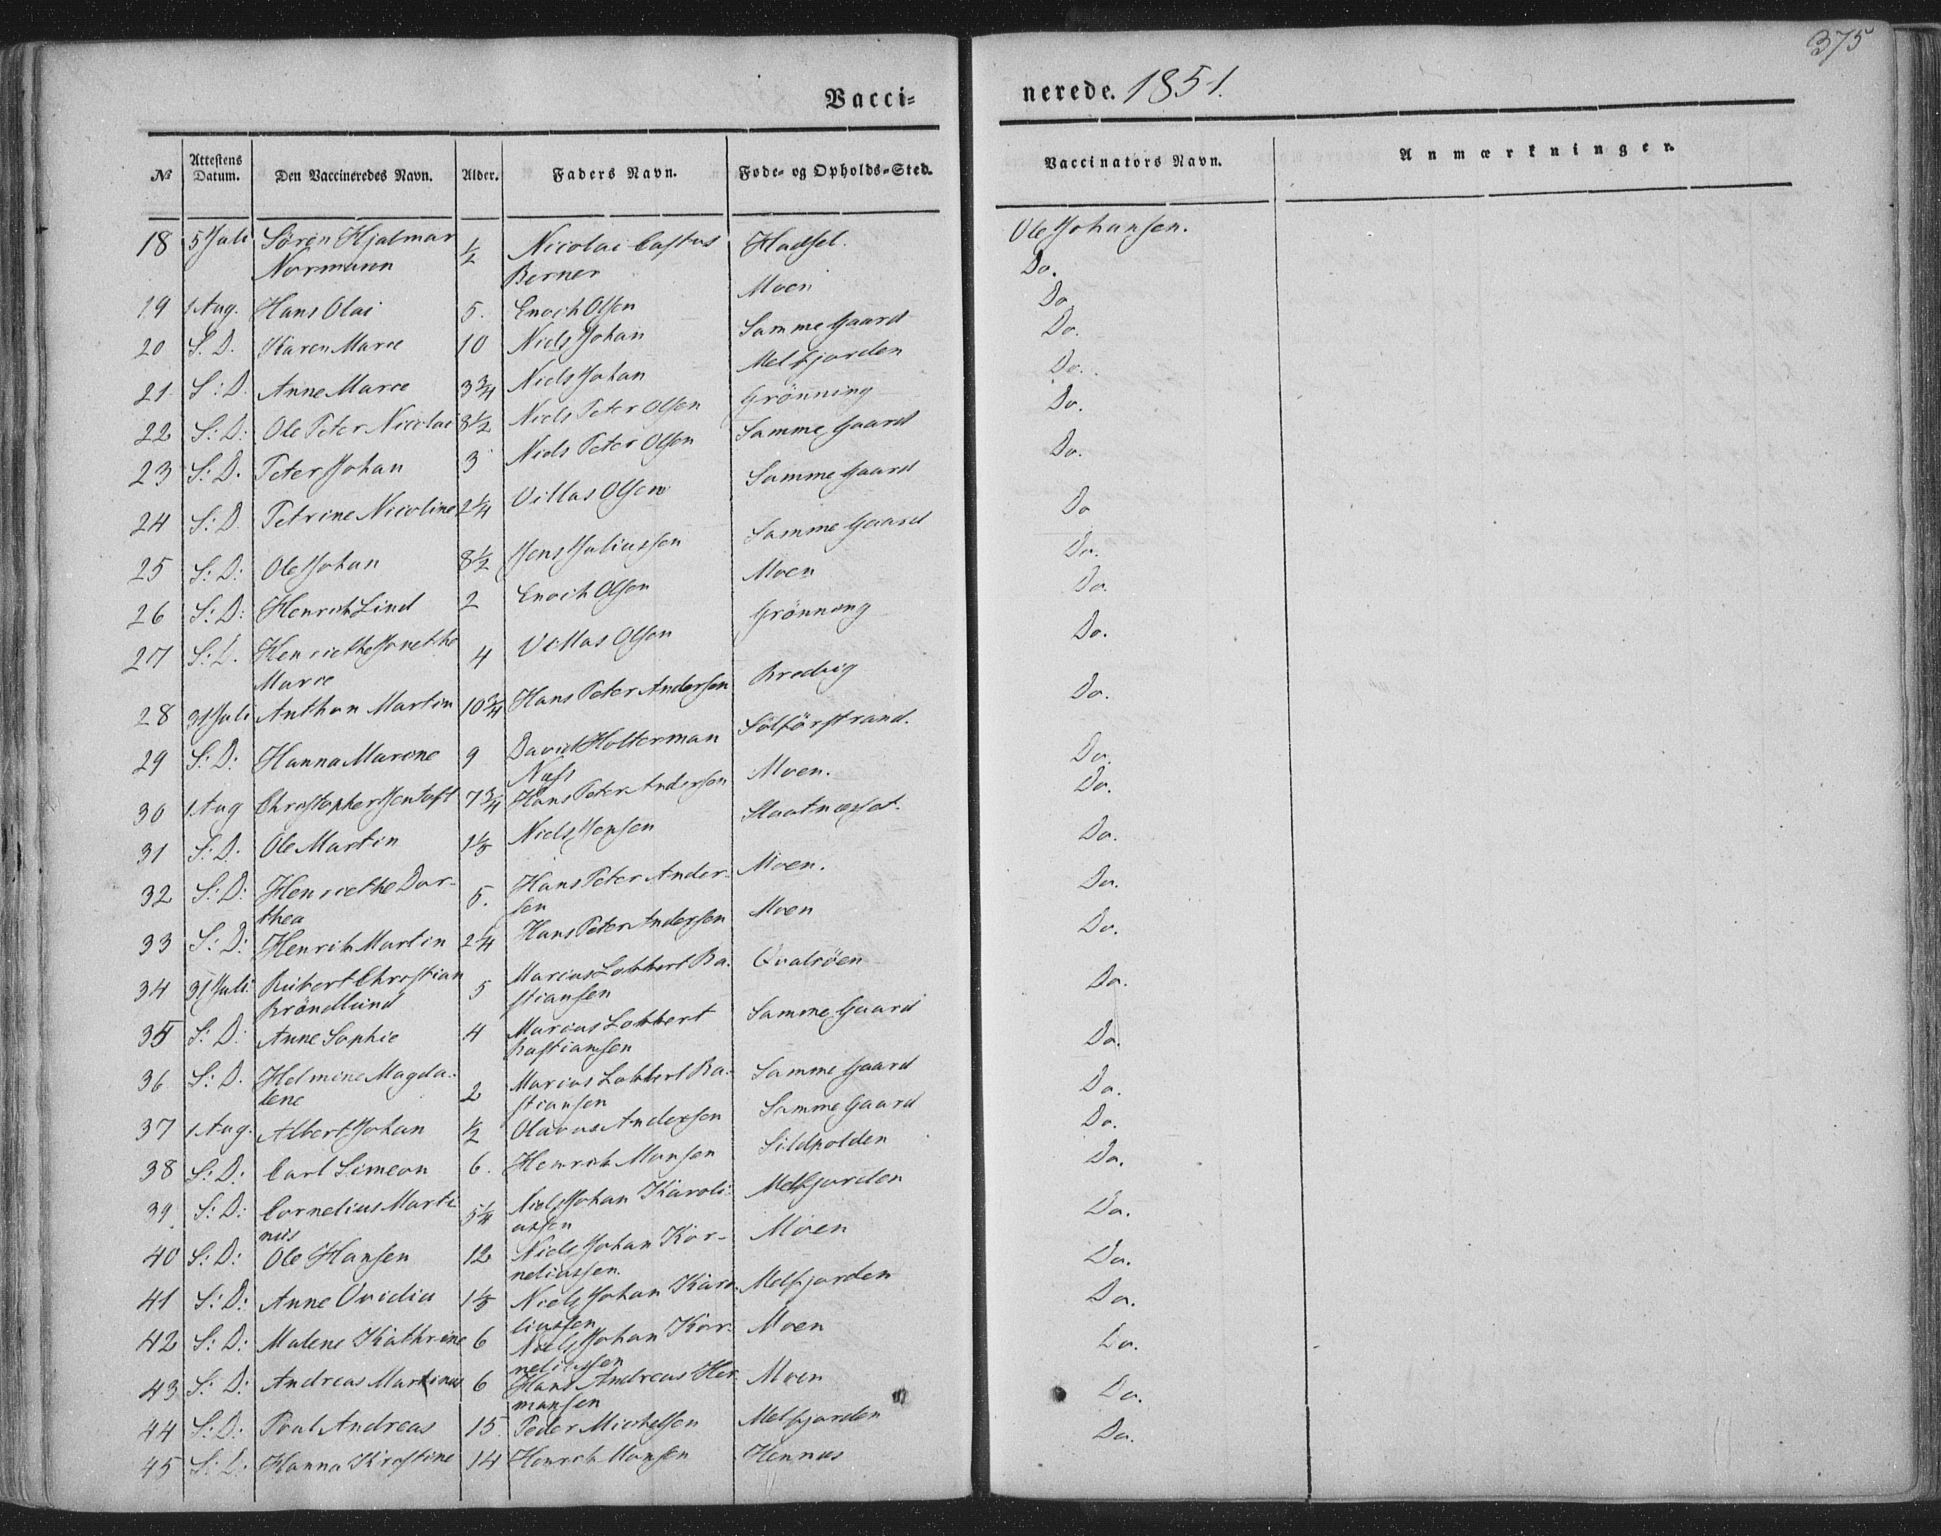 375
Vacci- nerede. 1851.
№ Attestens Datum. Den Vaccineredes Navn. Alder. Faders Navn. Føde- og Opholds-Sted. Vaccinators Navn. Anmærkninger.
18 5 Juli Sören Hjalmar ½ Nicolai Castus Hadsel. Ole Johansen.
Normann Berner Do.
19 1 Aug. Hans Olai 5. Enoch Olsen Moen Do.
20 S. D. Karen Marie 10 Niels Johan Samme Gaard Do.
21 S: D. Anne Marie 3¾ Niels Johan Melfjorden Do.
22 S: D: Ole Peter Nicolai 8½ Niels Peter Olsen Grönning Do.
23 S: D. Peter Johan 3 Niels Peter Olsen Samme Gaard Do.
24 S: D. Petrine Nicoline 2¼ Villas Olsen Samme Gaard Do
25 S: D: Ole Johan 8½ Jens Juliussen Samme Gaard Do.
26 S: D: Henrich Lind 2 Enoch Olsen Moen Do.
27 S: D. Henriethe Jonethe 4 Villas Olsen Grönning Do.
Marie
28 31 Juli Anthon Martin 10¾ Hans Peter Andersen Bredvig Do.
29 S: D: Hanna Marine 9 David Holterman Solförstrand. Do.
Næss
30 1 Aug Christopher Jentoft 7¾ Hans Peter Andersen Moen. Do.
31 S: D. Ole Martin Niels Jensen Do.
32 S: D: Henriethe Dor- 5. Hans Peter Ander- Moen. Do.
thea sen
33 S: D: Henrich Martin 2¼ Hans Peter Andersen Moen Do.
34 31 Juli Robert Christian 5 Marius Lobbert Ba- Qvalröen Do.
Bröndlund stiansen
35 S: D: Anne Sophie 4 Marius Lobbert Samme Gaard Do.
Bastiansen
36 S: D. Helmine Magda- 2 Marius Lobbert Ba- Samme Gaard Do.
lene stiansen
37 1 Aug. Albert Johan ½ Olavus Andersen Samme Gaard Do.
38 S: D: Carl Simeon 6. Henrich Monsen Sildpolden Do.
39 S: D: Cornelius Marti- 5¼ Niels Johan Karoli- Melfjorden Do.
nus ussen
40 S: D: Ole Hansen 12 Niels Johan Kor- Moen Do.
neliussen.
41 S: D: Anne Ovidia Niels Johan Karo- Melfjorden Do.
liussen
42 S: D: Malene Kathrine 6 Niels Johan Kor- Moen Do.
neliussen
43 S: D: Andreas Martinus 6 Hans Andreas Her- Moen Do.
mansen
44 S: D: Poul Andreas 15. Peder Michelsen Melfjorden Do.
45 S: D: Hanna Kirstine 14 Henrich Monsen Hennæs